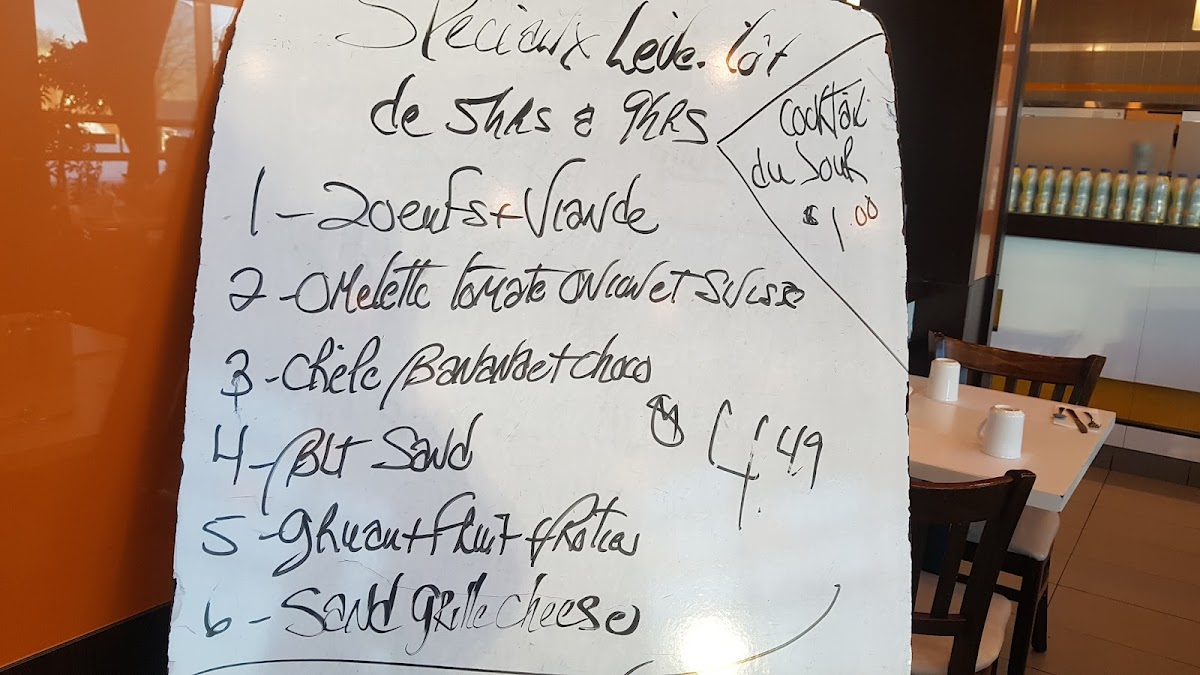 Speciaux Leve. tôt
de 5hrs à 9hrs
Cocktail
du Jour
$1.00
1 - 2 oeufs + Viande
2 - Omelette tomate oNion et Suisse
3 - Crêpe Banane et choco
$4.49
4 - BLT Sand
5 - gruau + fruit + rôties
6 - Sand Grille Cheese